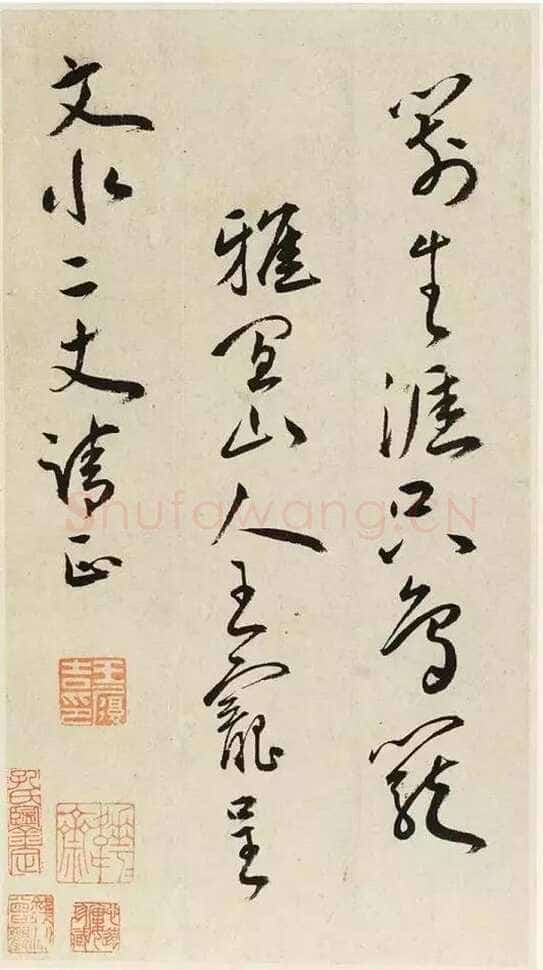 生涯只鳥籠
雅宜山人王寵呈
文水二丈請正
王履吉印
Shufawang.CN